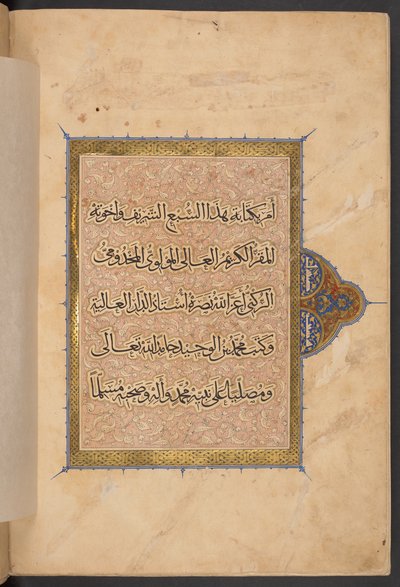 أمر بكتابة هذا السبع الشريف وإخوته
المقر الكريم العالي المولوي المخدومي
الركني أعز الله نصره أستاذ الدار العالية
وكتب محمد بن الوحيد حامدا لله تعالى
ومصليا على نبيه محمد وآله وصحبه مسلما